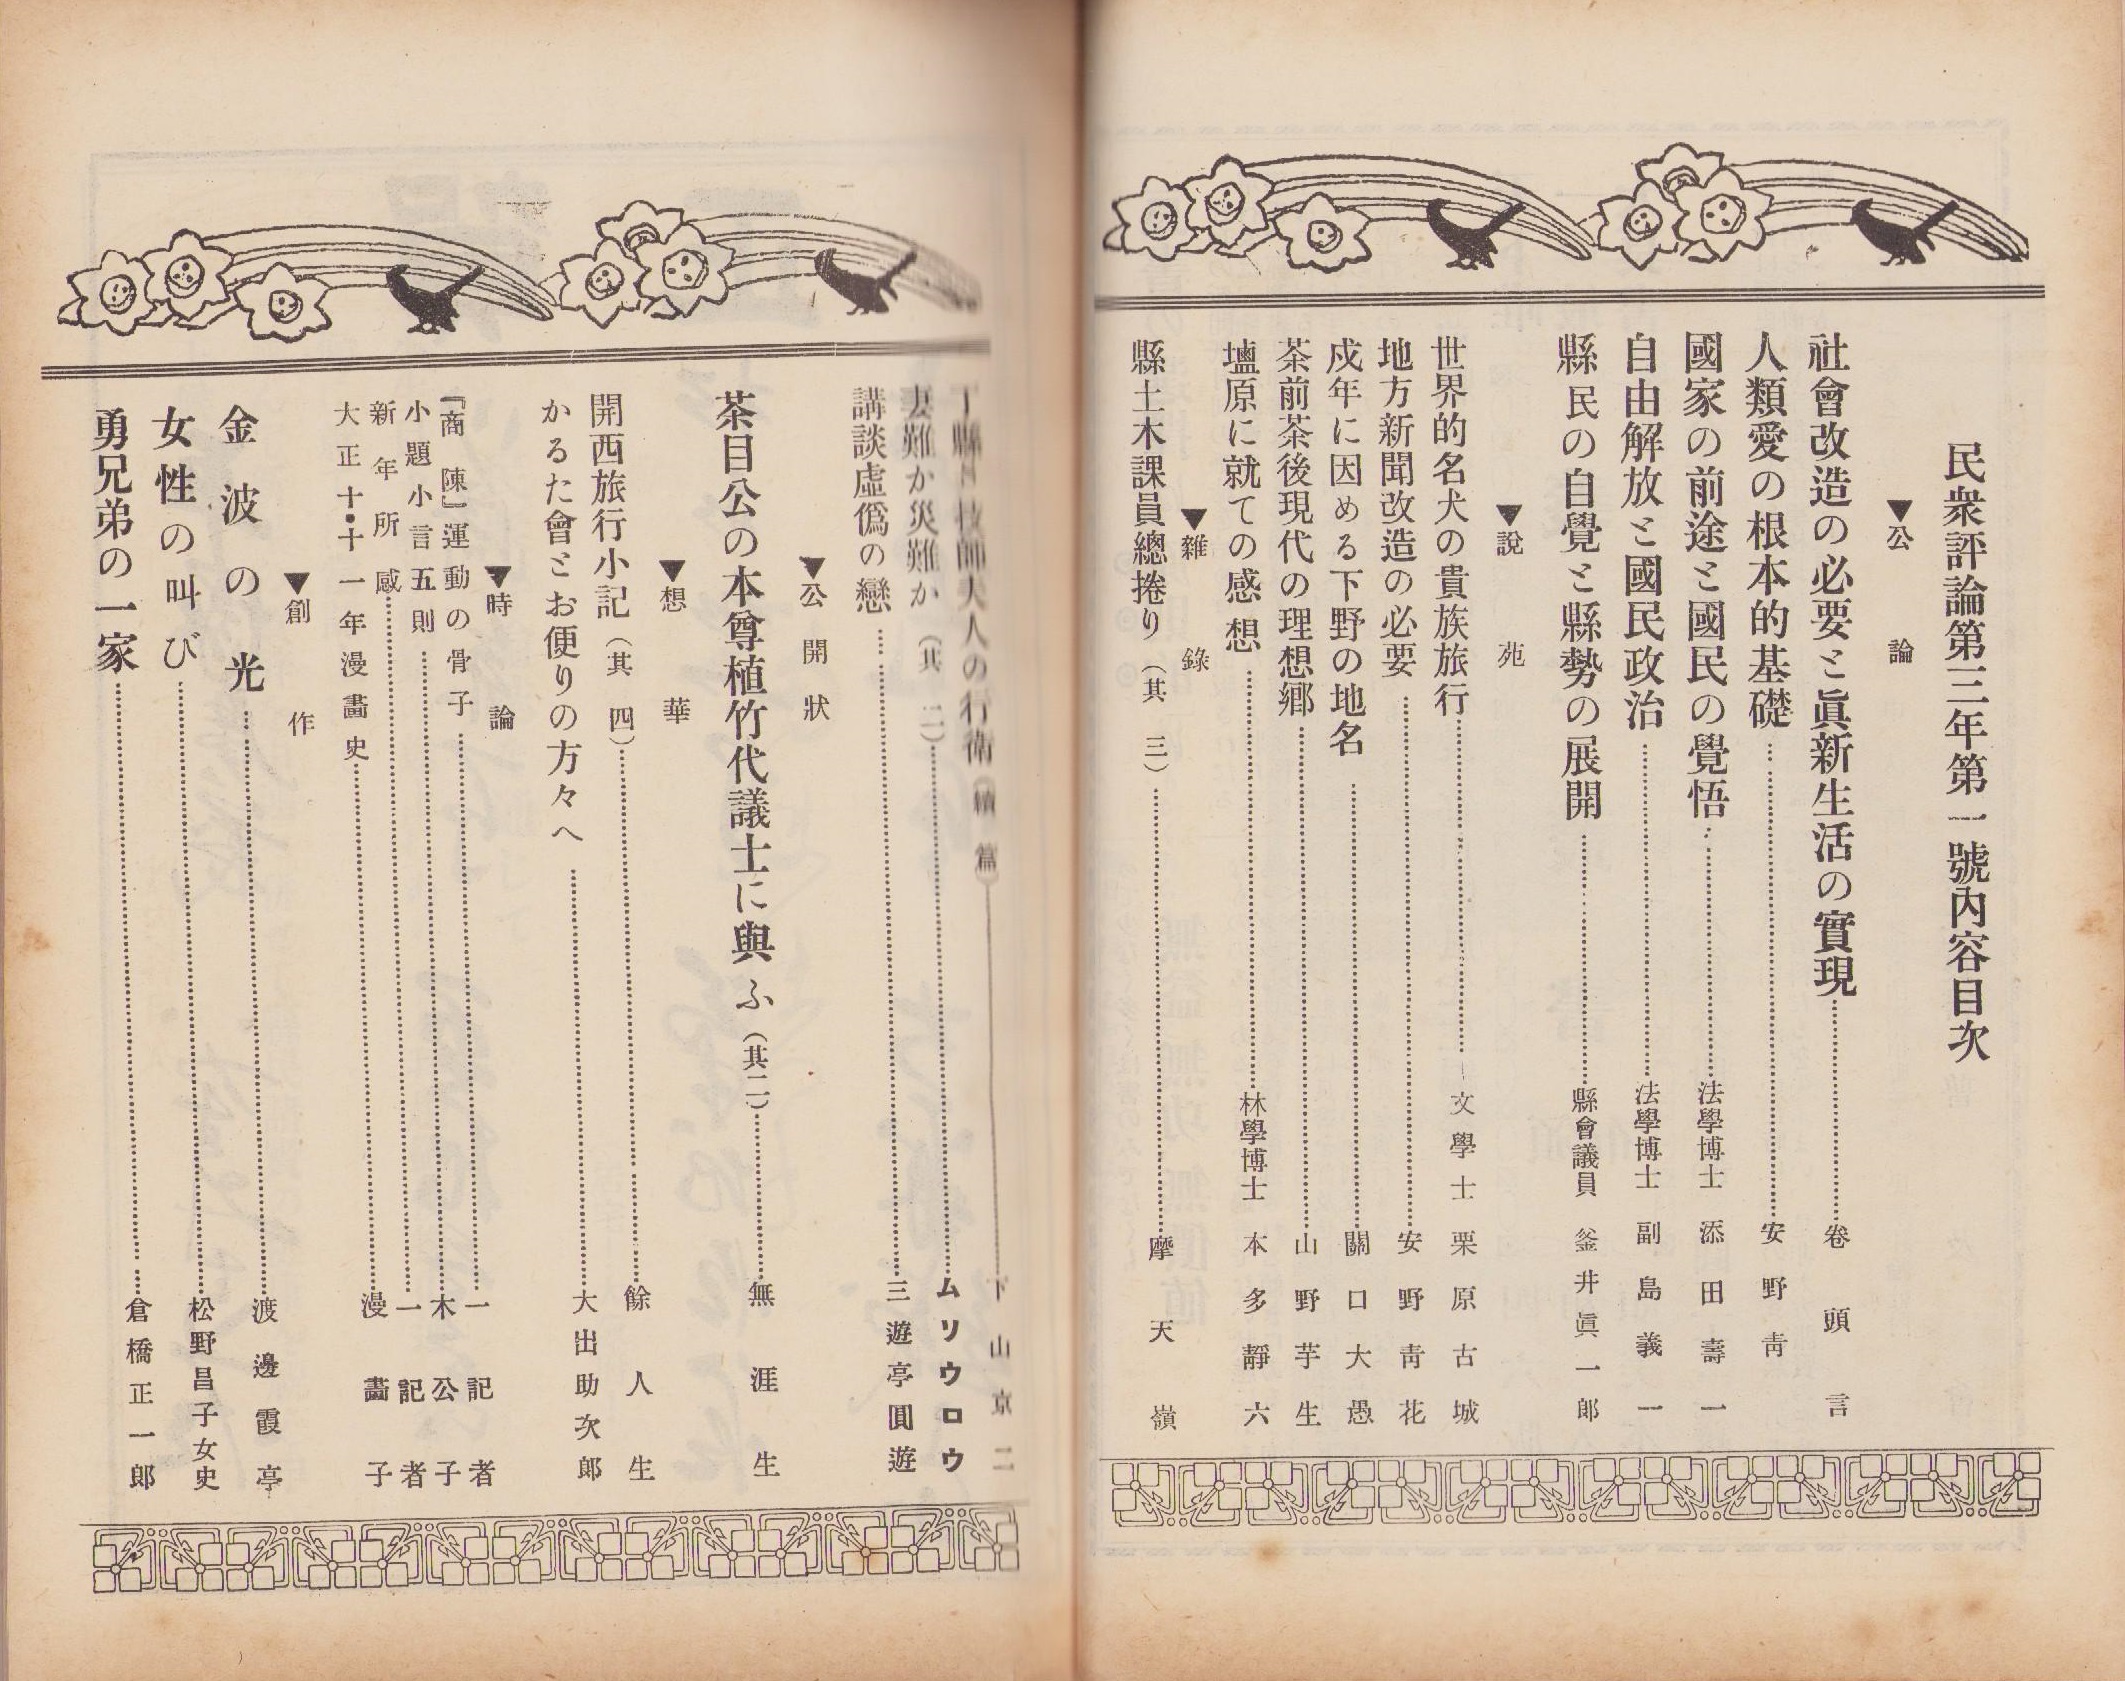 民衆評論第三年第一號內容目次
▼公論
社會改造の必要と眞新生活の實現 卷頭言
人類愛の根本的基礎 安野靑
國家の前途と國民の覺悟 法學博士 添田壽一
自由解放と國民政治 法學博士 副島義一
縣民の自覺と縣勢の展開 縣會議員 釜井眞一郞
▼說苑
世界的名犬の貴族旅行 文學士 栗原古城
地方新聞改造の必要 安野靑花
戍年に因める下野の地名 關口大愚
茶前茶後現代の理想鄕 山野芋生
塩原に就ての感想 林學博士 本多靜六
▼雜錄
縣土木課員總捲り（其三） 摩天嶺
縣技師夫人の行衛（續篇） 下山京二
妻難か災難か（其二） ムソウロウ
講談虛僞の戀 三遊亭圓遊
▼公開狀
茶目公の本尊植竹代議士に與ふ（其二） 無涯生
▼想華
開西旅行小記（其四） 餘人生
かるた會とお便りの方々へ 大出助次郞
▼時論
『商陳』運動の骨子 一記者
小題小言五則 木公子
新年所感 一記者
大正十・十一年漫畵史 漫畵子
▼創作
金波の光 渡邊霞亭
女性の叫び 松野昌子女史
勇兄弟の一家 倉橋正一郞